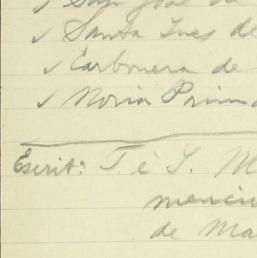 ✓ San José de
✓ Santa Ines de
✓ Carbonera de
✓ Noria Prim
Escrit: T. é I. M
mencio
de Ma